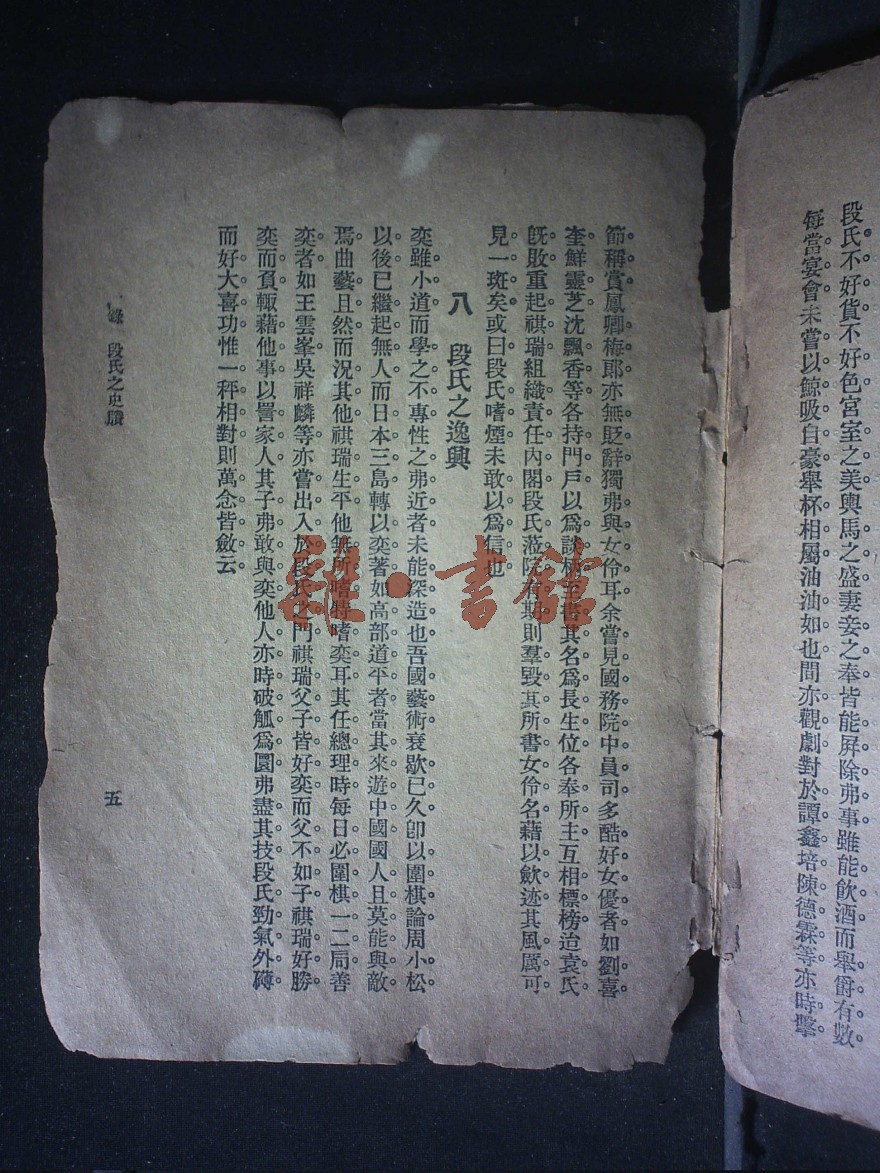 段氏不好貨不好色宮室之美輿馬之盛妻妾之奉皆能屏除弗事雖能飲酒而舉爵有數
每當宴會未嘗以鯨吸自豪舉杯相屬油油如也間亦觀劇對於譚鑫培陳德霖等亦時擊
節稱賞鳳卿梅郎亦無貶辭獨弗與女伶耳余嘗見國務院中員司多酷好女優者如劉喜
奎鮮靈芝沈飄香等各持門戶以爲談柄至書其名爲長生位各奉所主互相標榜迨袁氏
旣敗重起祺瑞組織責任內閣段氏蒞院有期則羣毀其所書女伶名藉以歛迹其風厲可
見一斑矣或曰段氏嗜煙未敢以爲信也
八 段氏之逸興
奕雖小道而學之不專性之弗近者未能深造也吾國藝術衰歇已久卽以圍棋論周小松
以後已繼起無人而日本三島轉以奕著如高部道平者當其來遊中國國人且莫能與敵
焉曲藝且然而況其他祺瑞生平他無所嗜特嗜奕耳其任總理時每日必圍棋一二局善
奕者如王雲峯吳祥麟等亦嘗出入於段氏之門祺瑞父子皆好奕而父不如子祺瑞好勝
奕而負輙藉他事以詈家人其子弗敢與奕他人亦時破觚爲圜弗盡其技段氏勁氣外礴
而好大喜功惟一秤相對則萬念皆斂云
錄 段氏之史牘
五
雜·書館